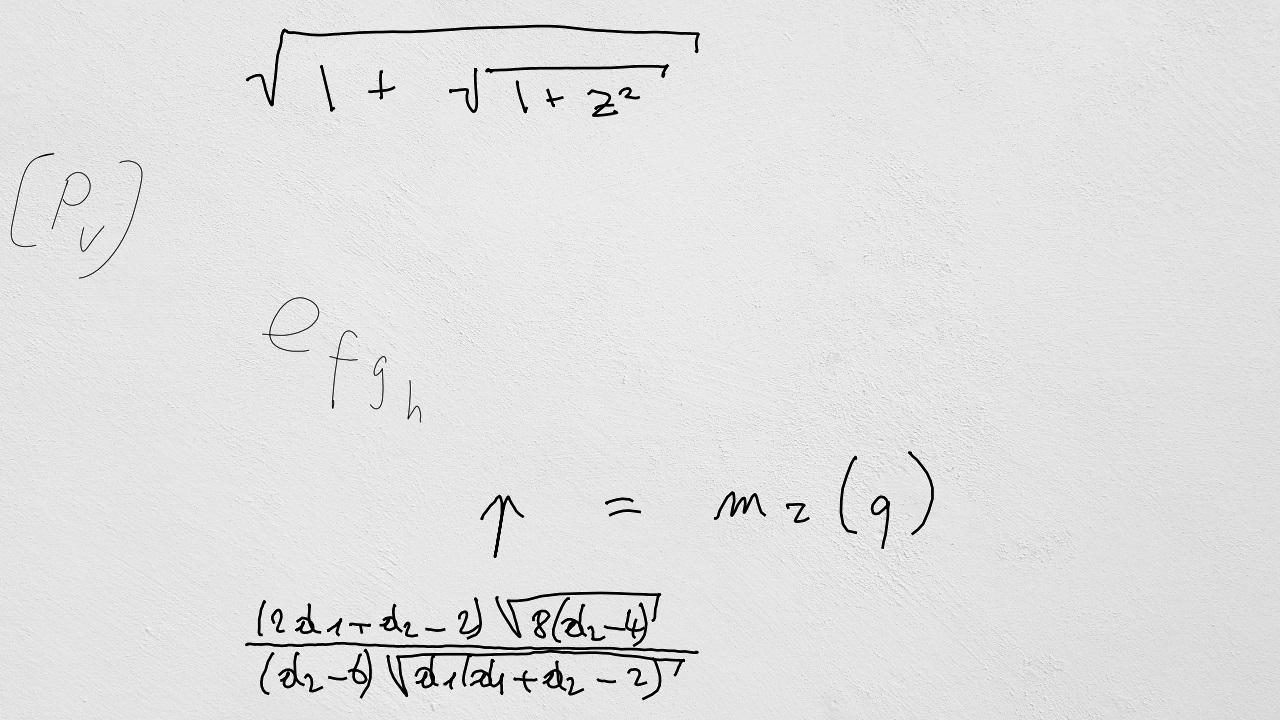 √(1 + √(1 + z²))
[P_v)
e_{f_{g_h}}
↑ = m_z(q)
((2d₁+d₂−2)√(8(d₂−4)))/((d₂−6)√(d₁(d₁+d₂−2)))